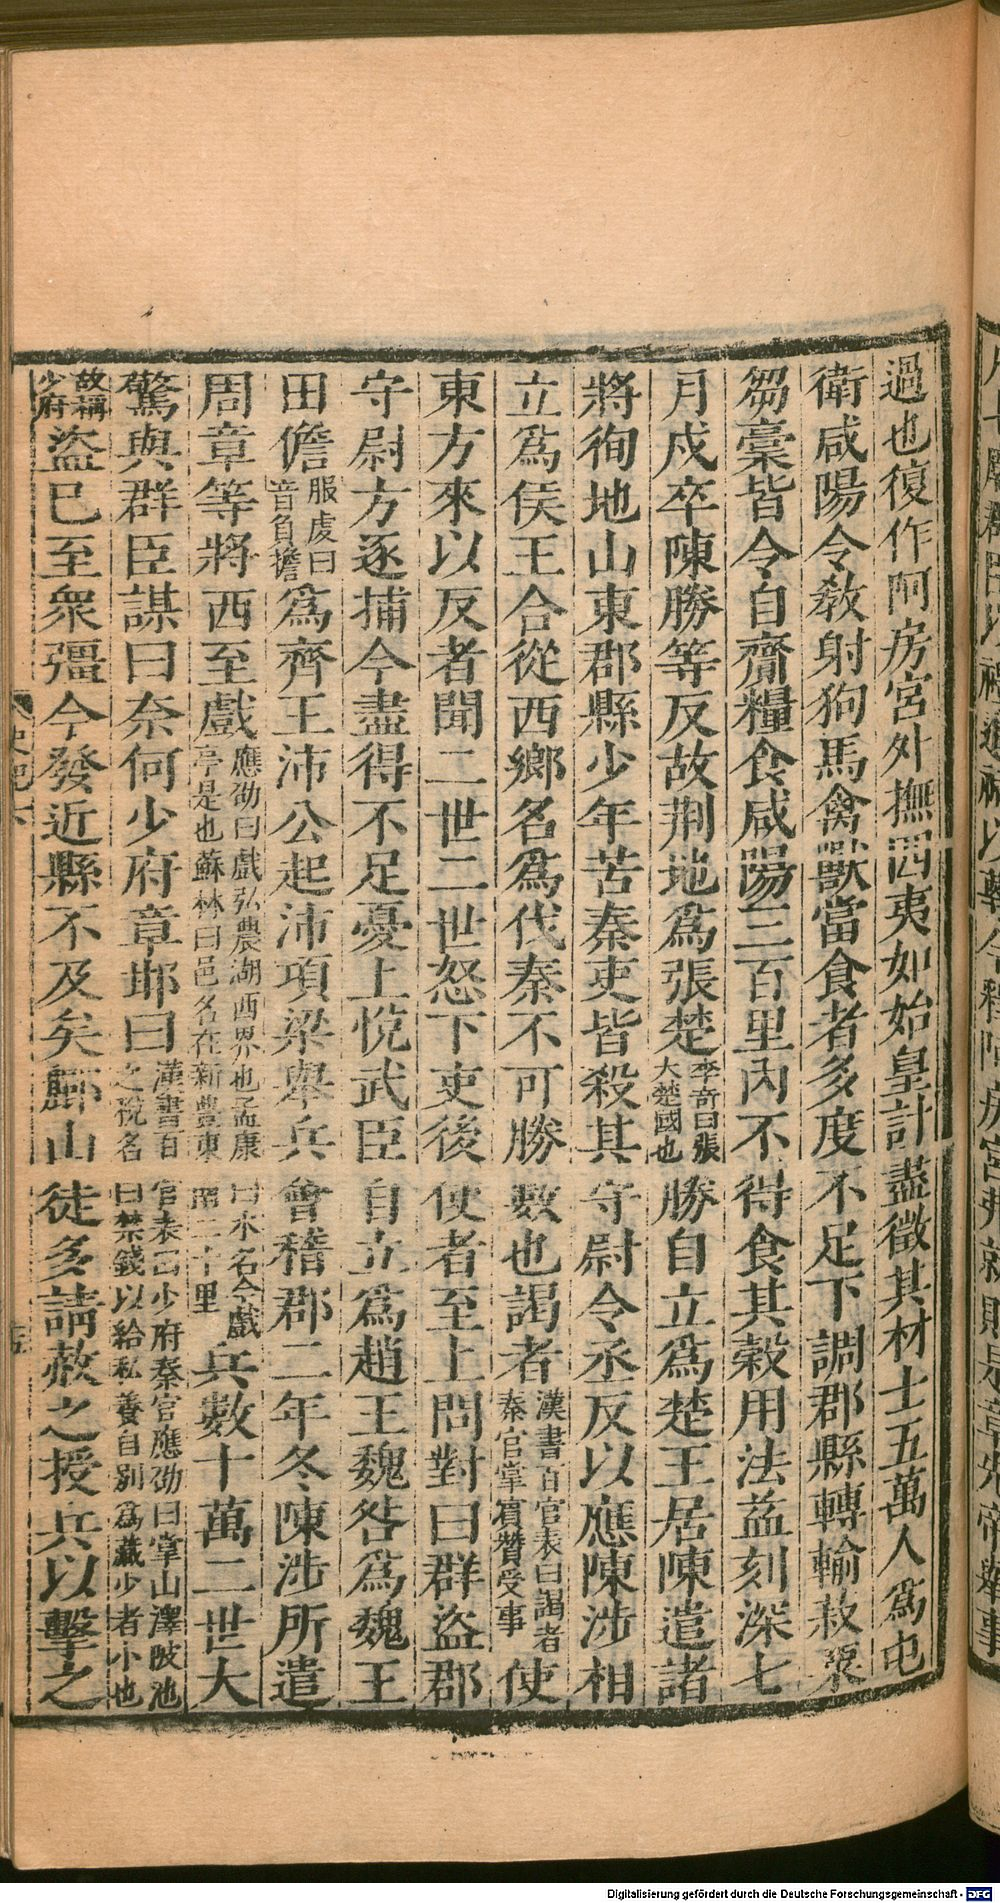 過也復作阿房宮外撫四夷如始皇計盡徵其材士五萬人爲屯
衛咸陽令敎射狗馬禽獸當食者多度不足下調郡縣轉輸菽粟
芻稾皆令自齎糧食咸陽三百里內不得食其穀用法益刻深七
月戍卒陳勝等反故荆地爲張楚李奇曰張大楚國也勝自立爲楚王居陳遣諸
將徇地山東郡縣少年苦秦吏皆殺其守尉令丞反以應陳涉相
立爲侯王合從西鄉名爲伐秦不可勝數也謁者漢書百官表曰謁者秦官掌賓贊受事使
東方來以反者聞二世二世怒下吏後使者至上問對曰群盜郡
守尉方逐捕今盡得不足憂上悅武臣自立爲趙王魏咎爲魏王
田儋服虔曰音負擔爲齊王沛公起沛項梁舉兵會稽郡二年冬陳涉所遣
周章等將西至戲應劭曰戲弘農湖西界也孟康曰水名今戲亭是也蘇林曰邑名在新豐東南三十里兵數十萬二世大
驚與群臣謀曰奈何少府章邯曰漢書百官表曰少府秦官應劭曰掌山澤陂池之稅名曰禁錢以給私養自別爲藏少者小也
故稱少府盜已至衆彊今發近縣不及矣酈山徒多請赦之授兵以擊之
史記六
Digitalisierung gefördert durch die Deutsche Forschungsgemeinschaft - DFG